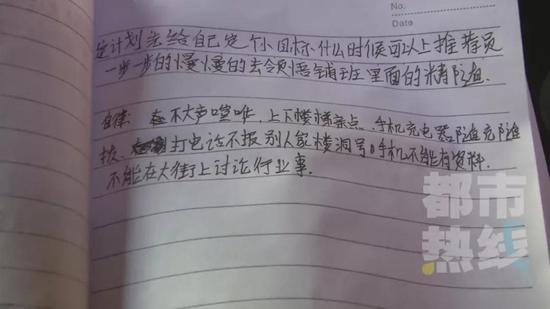 No.
Date
定计划 去给自己定个小目标什么时候可以上推荐员
一步一步的慢慢的去领悟铺班里面的精随.
自律: 不大声喧哗, 上下楼梯轻点, 手机充电器随充随
拔. 打电话不报别人家楼洞号。手机不能有资料.
不能在大街上讨论行业事.
都市
热线